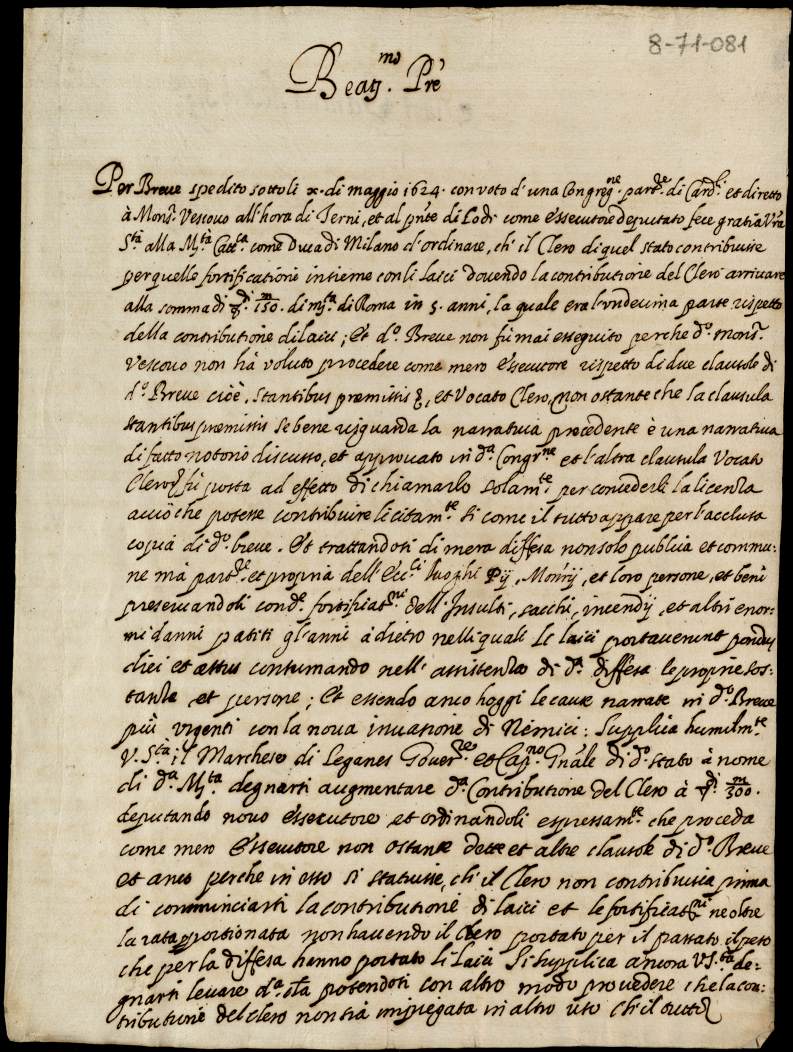 8-71-081
Beat.mo Pre
Per Breve spedito sotto li x. di maggio 1624. con voto d'una Congreg.ne part.re di Card.li et diretto
à Mons.r Vescovo all'hora di Terni, et al pnte di Lodi come essecutore deputato fece gratia Vra
S.tà alla M.tà Catt.ca come Duca di Milano d'ordinare, ch'il Clero di quel stato contribuisse
per quelle fortificationi insieme con li laici dovendo la contributione del Clero arrivare
alla somma di di m/150. di m.ta di Roma in 5. anni, la quale era l'undecima parte rispetto
della contributione di laici; Et d.o Breve non fù mai esseguito perche d.o Mons.r
Vescovo non hà voluto procedere come mero essecutore rispetto di due clausole di
d.o Breve cioè, stantibus premissis, et Vocato Clero, non ostante che la clausula
stantibus premissis se bene risguarda la narrativa precedente è una narrativa
di fatto notorio discusso, et approvato in d.a Congr.ne et l'altra clausula Vocato
Clero fù posta ad effetto di chiamarlo solam.te per concederli la licenza
acciò che potesse contribuire licitam.te si come il tutto appare per l'acclusa
copia di d.o breve. Et trattandosi di mera diffesa non solo publica et commu-
ne mà part.re et propria dell'Ecc.ci luoghi Pij, Mon.rij, et loro persone, et beni
preservandoli con d.e fortificat.ni dell'Insulti, sacchi, incendij, et altri enor-
mi danni patiti gl'anni à dietro nelli quali li laici portaverunt pondus
diei et æstus consumando nell'assistenza di d.a diffesa le proprie sos-
tanze et persone; Et essendo anco hoggi le cause narrate in d.o Breve
più urgenti con la nova invasione di Nemici: Supplica humilm.te
V. S.tà il Marchese di Leganes Gover.re et Cap.no Gnãle di d.o stato à nome
di d.a M.tà degnarsi augmentare d.a Contributione del Clero à di m/300.
deputando novo essecutore et ordinandoli espressam.te che proceda
come mero Essecutore non ostante dette et altre clausole di d.o Breve
et anco perche in esso si statuisse, ch'il Clero non contribuisca prima
di cominciarsi la contributione di laici et le fortificat.ni ne oltre
la rata apportionata non havendo il Clero portato per il passato il peso
che per la diffesa hanno portato li laici si supplica ancora V.S.tà de-
gnarsi levare d.a potendosi con altro modo provedere che la con-
tributione del clero non sia impiegata in altro uso ch'il